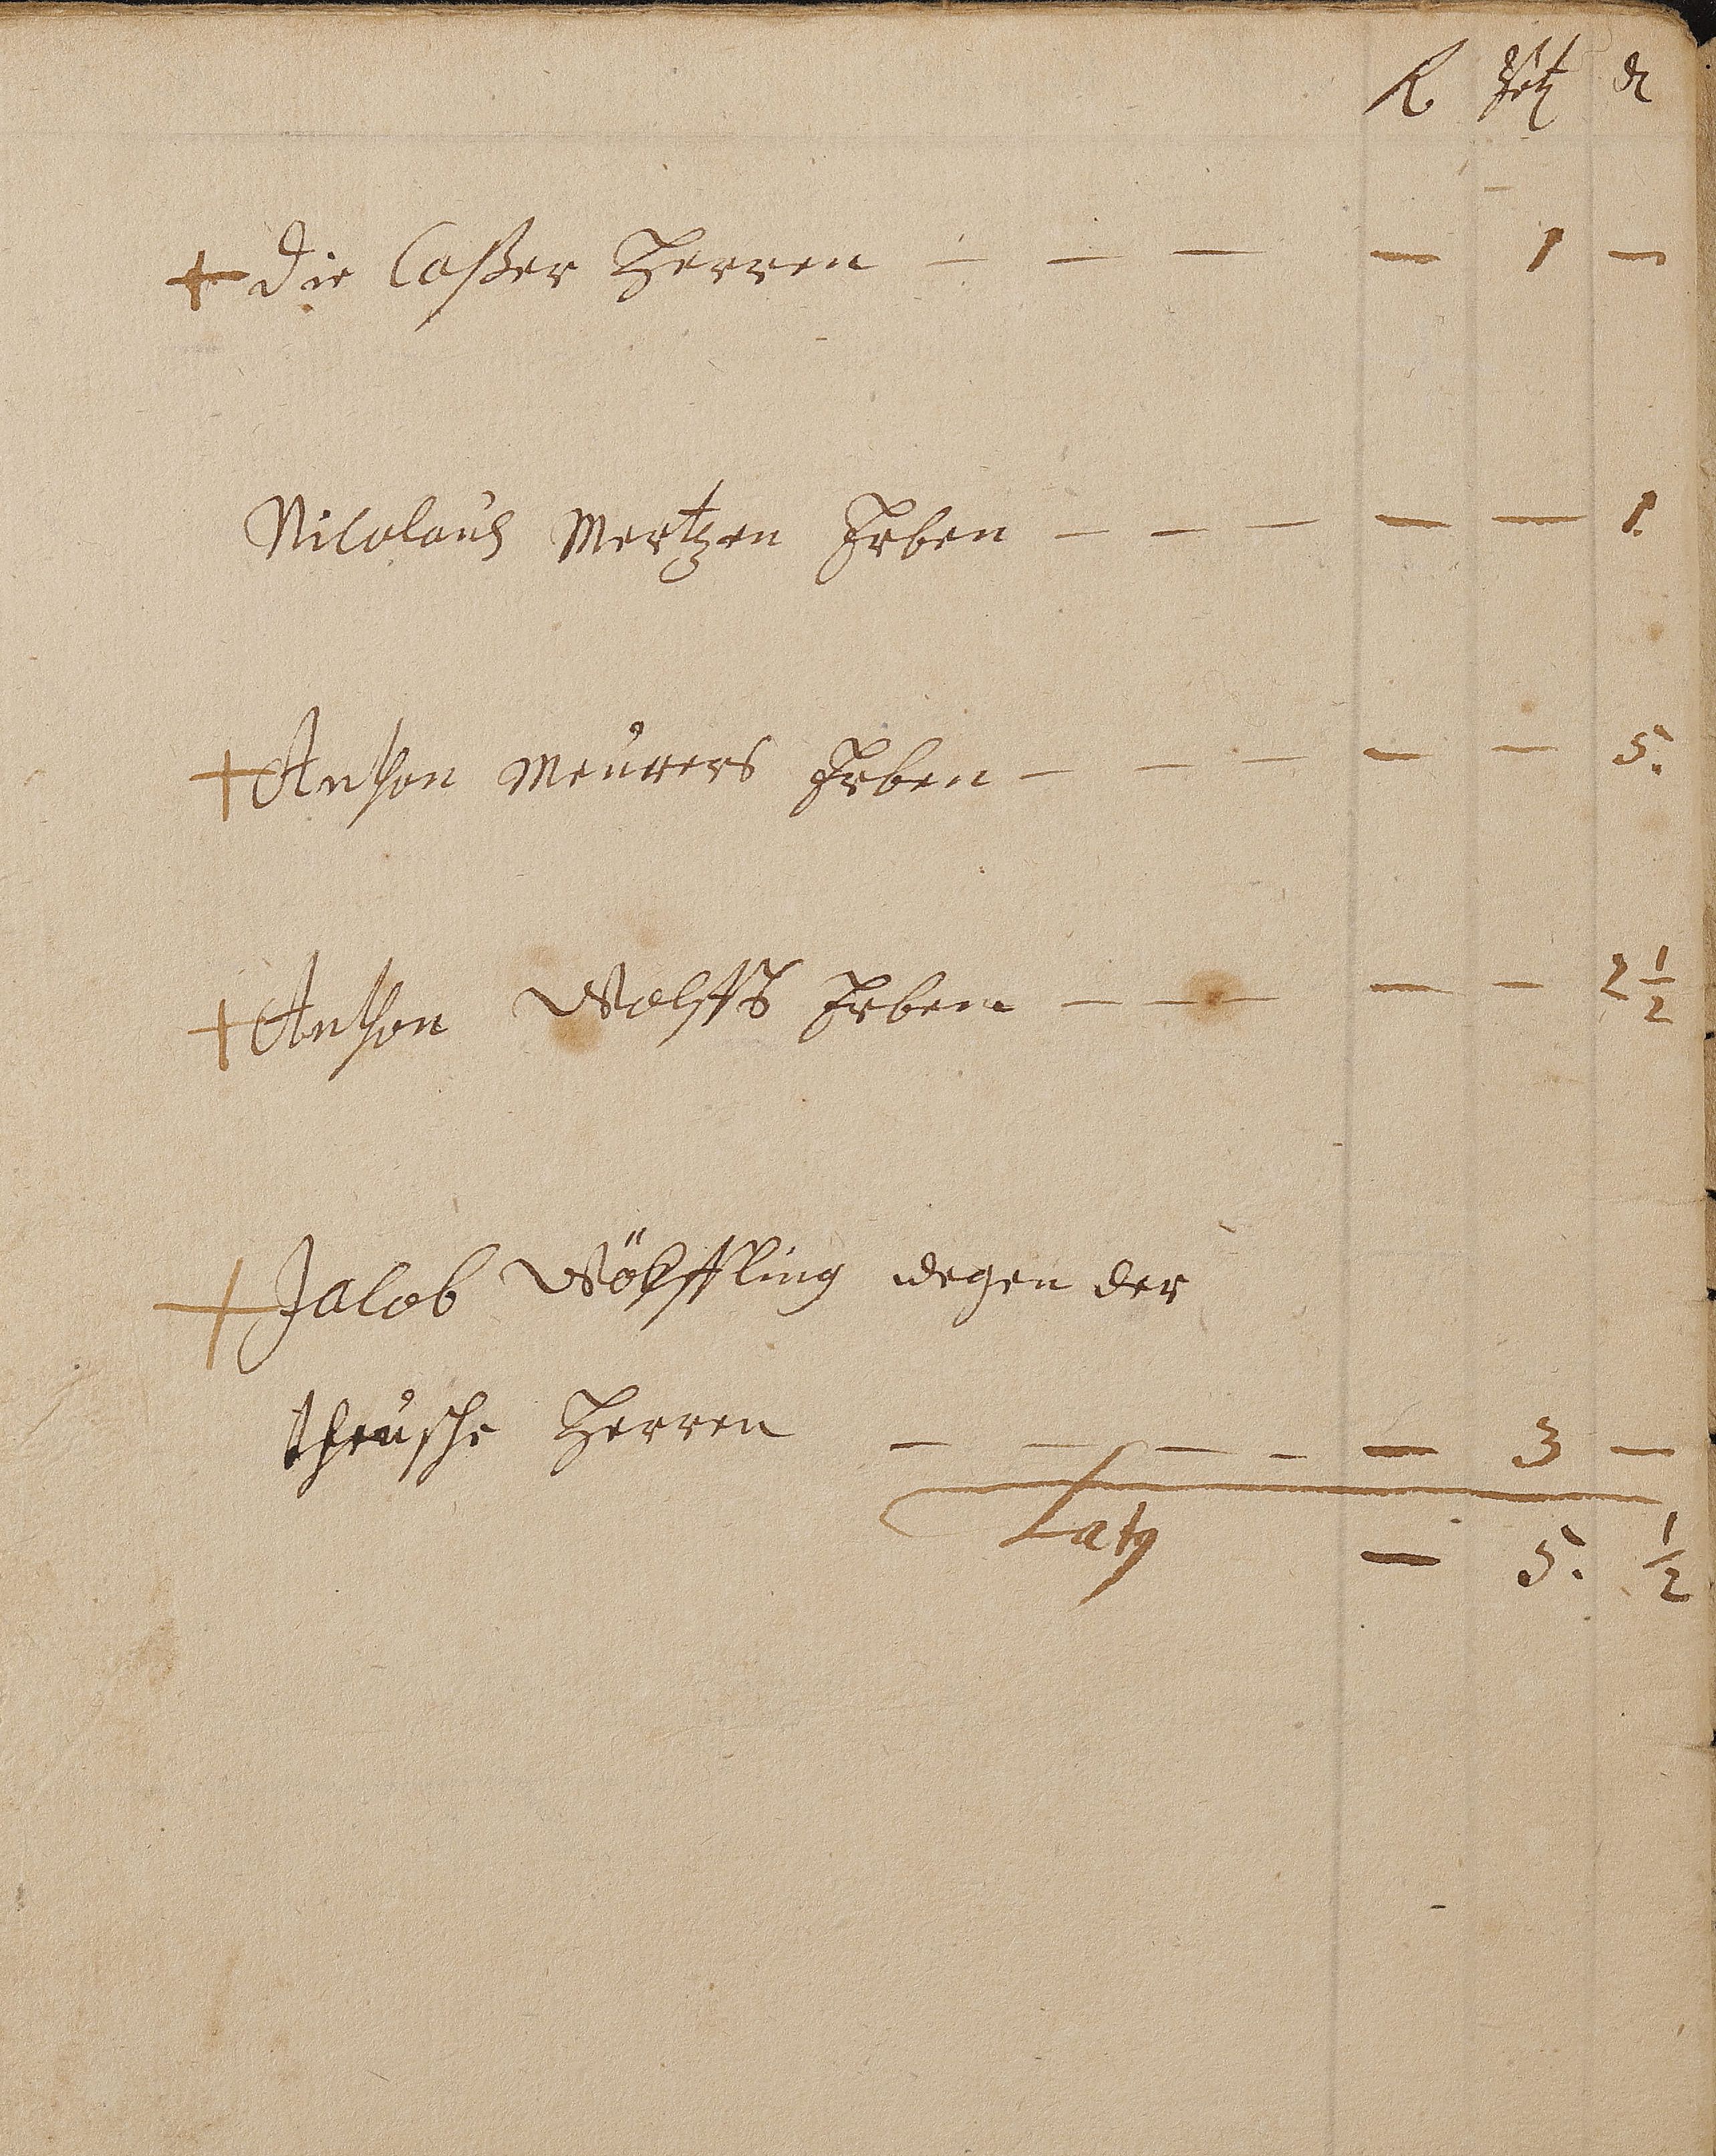 R Ptz ₰
+ Die Caßer Herren — — — — 1 —
Nicolaus Mertzen Erben — — — — — 1.
+ Anthon Meurers Erben — — — — — 5.
+ Anthon Wolffs Erben — — — — — 2 1/2
+ Jacob Wölffling wegen der
theusche Herren — — — — — 3 —
Latq — 5. 1/2